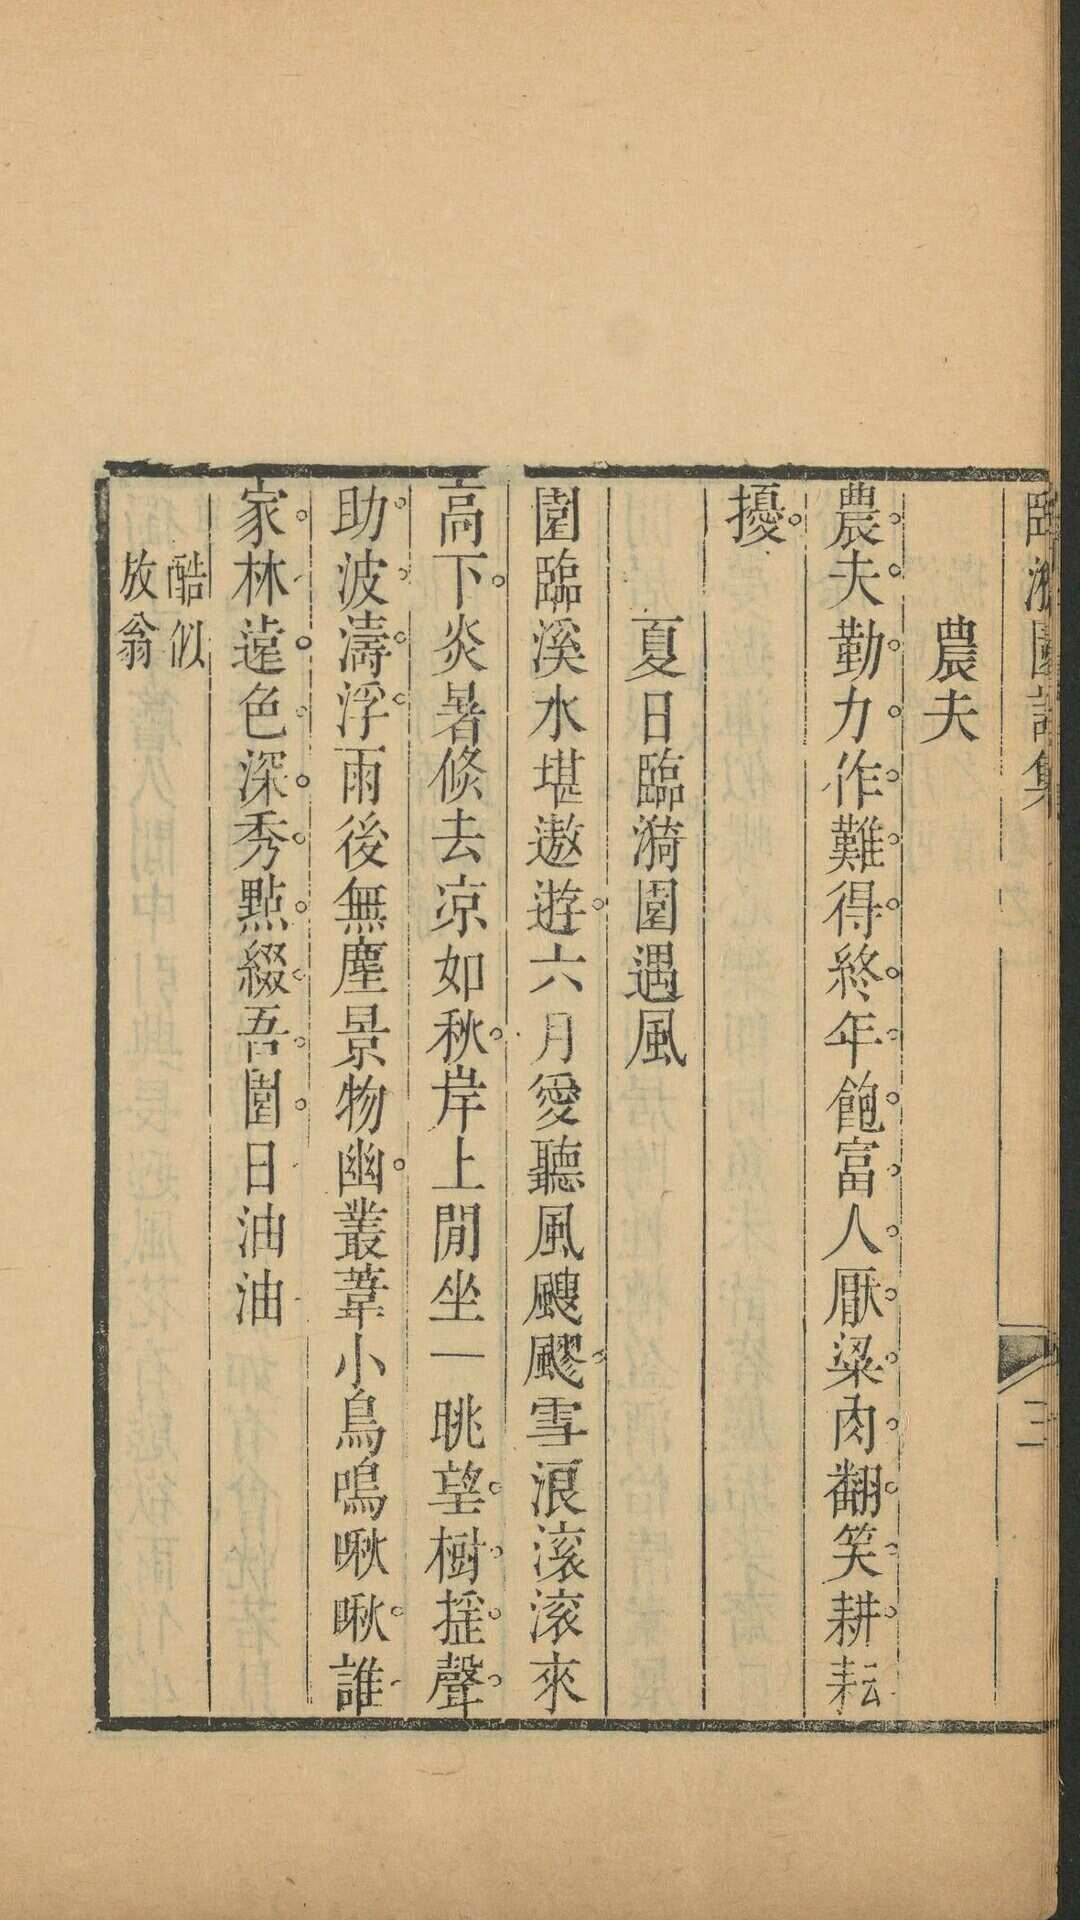 臨漪園詩集
三
農夫
農夫勤力作難得終年飽富人厭粱肉翻笑耕耘
擾
夏日臨漪園遇風
園臨溪水堪遨遊六月愛聽風颼飂雪浪滚滚來
高下炎暑倐去凉如秋岸上閒坐一眺望樹摇聲
助波濤浮雨後無塵景物幽叢葦小鳥鳴啾啾誰
家林遠色深秀點綴吾園日油油
酷似
放翁